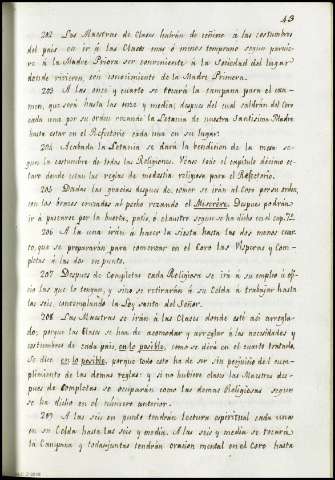 43
202 Las Maestras de Clases habrán de ceñirse a las costumbres
del pais en ir á las Clases mas ó menos temprano segun parecie-
re á la Madre Priora ser conveniente á la Sociedad del lugar
donde vivieren, con conocimiento de la Madre Primera.
203 A las once y cuarto se tocará la campana para el exa-
men, que será hasta las once y media; despues del cual saldrán del Coro
cada una por su orden rezando la Letania de nuestra Santisima Madre
hasta estar en el Refectorio cada una en su lugar.
204 Acabada la Letania se dará la bendicion de la mesa se-
gun la costumbre de todas las Religiones. Vease todo el capitulo décimo oc-
tavo donde estan las reglas de modestia religiosa para el Refectorio.
205 Dadas las gracias despues de comer se irán al Coro por su orden,
con los brazos cruzados al pecho rezando el Miserére. Despues podrán
ir á pasearse por la huerta, patio, ó claustro segun se ha dicho en el cap. 72.
206 A la una irán á hacer la siesta hasta las dos menos cuar-
to, que se prepararán para comenzar en el Coro las Visperas y Com-
pletas á las dos en punto.
207 Despues de Completas cada Religiosa se irá á su empleo ú ofi-
cio las que lo tengan, y sino se retirarán á su Celda á trabajar hasta
las seis, contemplando la Ley santa del Señor.
208 Las Maestras se irán á las Clases donde esté asi arregla-
do; porque las Clases se han de acomodar y arreglar á las necesidades y
costumbres de cada pais, en lo posible, como se dirá en el cuarto tratado.
Se dice en lo posible, porque todo esto ha de ser sin perjuicio del cum-
plimiento de las demas reglas: y si no hubiere clases las Maestras des-
pues de Completas se ocuparán como las demas Religiosas segun
se ha dicho en el número anterior.
209 A las seis en punto tendrán Lectura espiritual cada una
en su Celda hasta las seis y media. A las seis y media se tocará
la Campana y todas juntas tendrán oracion mental en el Coro hasta